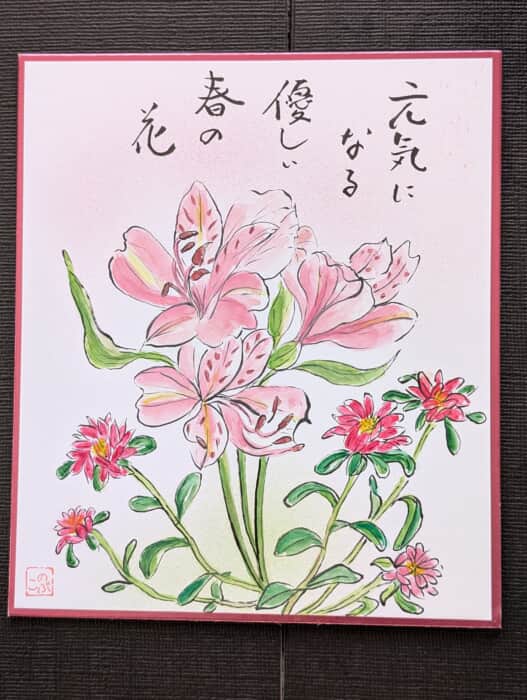 元気に
なる
優しい
春の
花